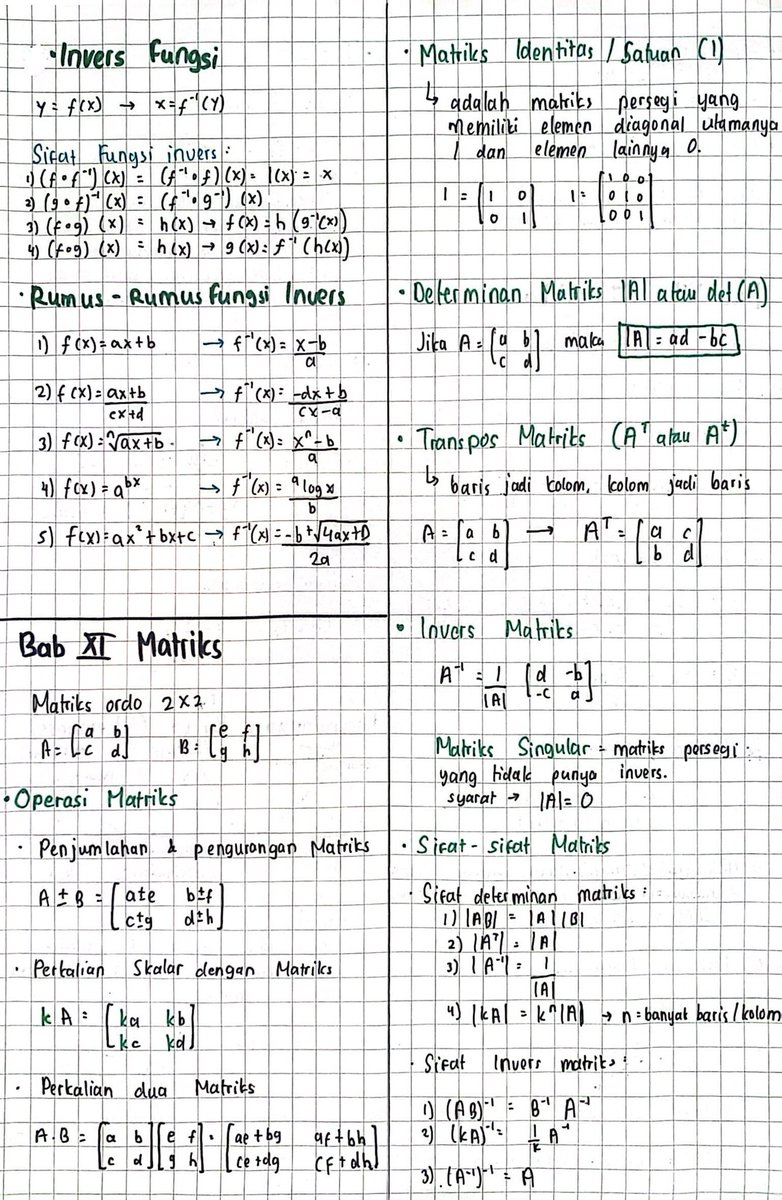 • Invers Fungsi
y = f(x) → x = f⁻¹(y)
Sifat Fungsi invers :
1) (f ∘ f⁻¹) (x) = (f⁻¹ ∘ f) (x) = I(x) = x
2) (g ∘ f)⁻¹ (x) = (f⁻¹ ∘ g⁻¹) (x)
3) (f∘g) (x) = h(x) → f(x) = h (g⁻¹(x))
4) (f∘g) (x) = h(x) → g(x) = f⁻¹ (h(x))
• Rumus - Rumus Fungsi Invers
1) f(x) = ax + b → f⁻¹(x) = (x-b)/a
2) f(x) = (ax+b)/(cx+d) → f⁻¹(x) = (-dx+b)/(cx-a)
3) f(x) = ⁿ√(ax+b) . → f⁻¹(x) = (xⁿ-b)/a
4) f(x) = a^(bx) → f⁻¹(x) = (ᵃlog x)/b
5) f(x) = ax² + bx + c → f⁻¹(x) = (-b + √(4ax+D))/2a
Bab XI Matriks
Matriks ordo 2×2
A = [a b; c d] B = [e f; g h]
• Operasi Matriks
• Penjumlahan & pengurangan Matriks
A ± B = [a±e b±f; c±g d±h]
• Perkalian Skalar dengan Matriks
k A = [ka kb; kc kd]
• Perkalian dua Matriks
A.B = [a b; c d] [e f; g h] = [ae+bg af+bh; ce+dg cf+dh]
• Matriks Identitas / Satuan (I)
↳ adalah matriks persegi yang
memiliki elemen diagonal utamanya
1 dan elemen lainnya 0.
I = [1 0; 0 1] I = [1 0 0; 0 1 0; 0 0 1]
• Determinan Matriks |A| atau det (A)
Jika A = [a b; c d] maka |A| = ad - bc
• Transpos Matriks (Aᵀ atau Aᵗ)
↳ baris jadi kolom, kolom jadi baris
A = [a b; c d] → Aᵀ = [a c; b d]
• Invers Matriks
A⁻¹ = 1/|A| [d -b; -c a]
Matriks Singular = matriks persegi
yang tidak punya invers.
syarat → |A| = 0
• Sifat - sifat Matriks
• Sifat determinan matriks :
1) |AB| = |A| |B|
2) |Aᵀ| = |A|
3) |A⁻¹| = 1/|A|
4) |kA| = kⁿ|A| → n = banyak baris / kolom
• Sifat Invers matriks :
1) (AB)⁻¹ = B⁻¹ A⁻¹
2) (kA)⁻¹ = 1/k A⁻¹
3) (A⁻¹)⁻¹ = A